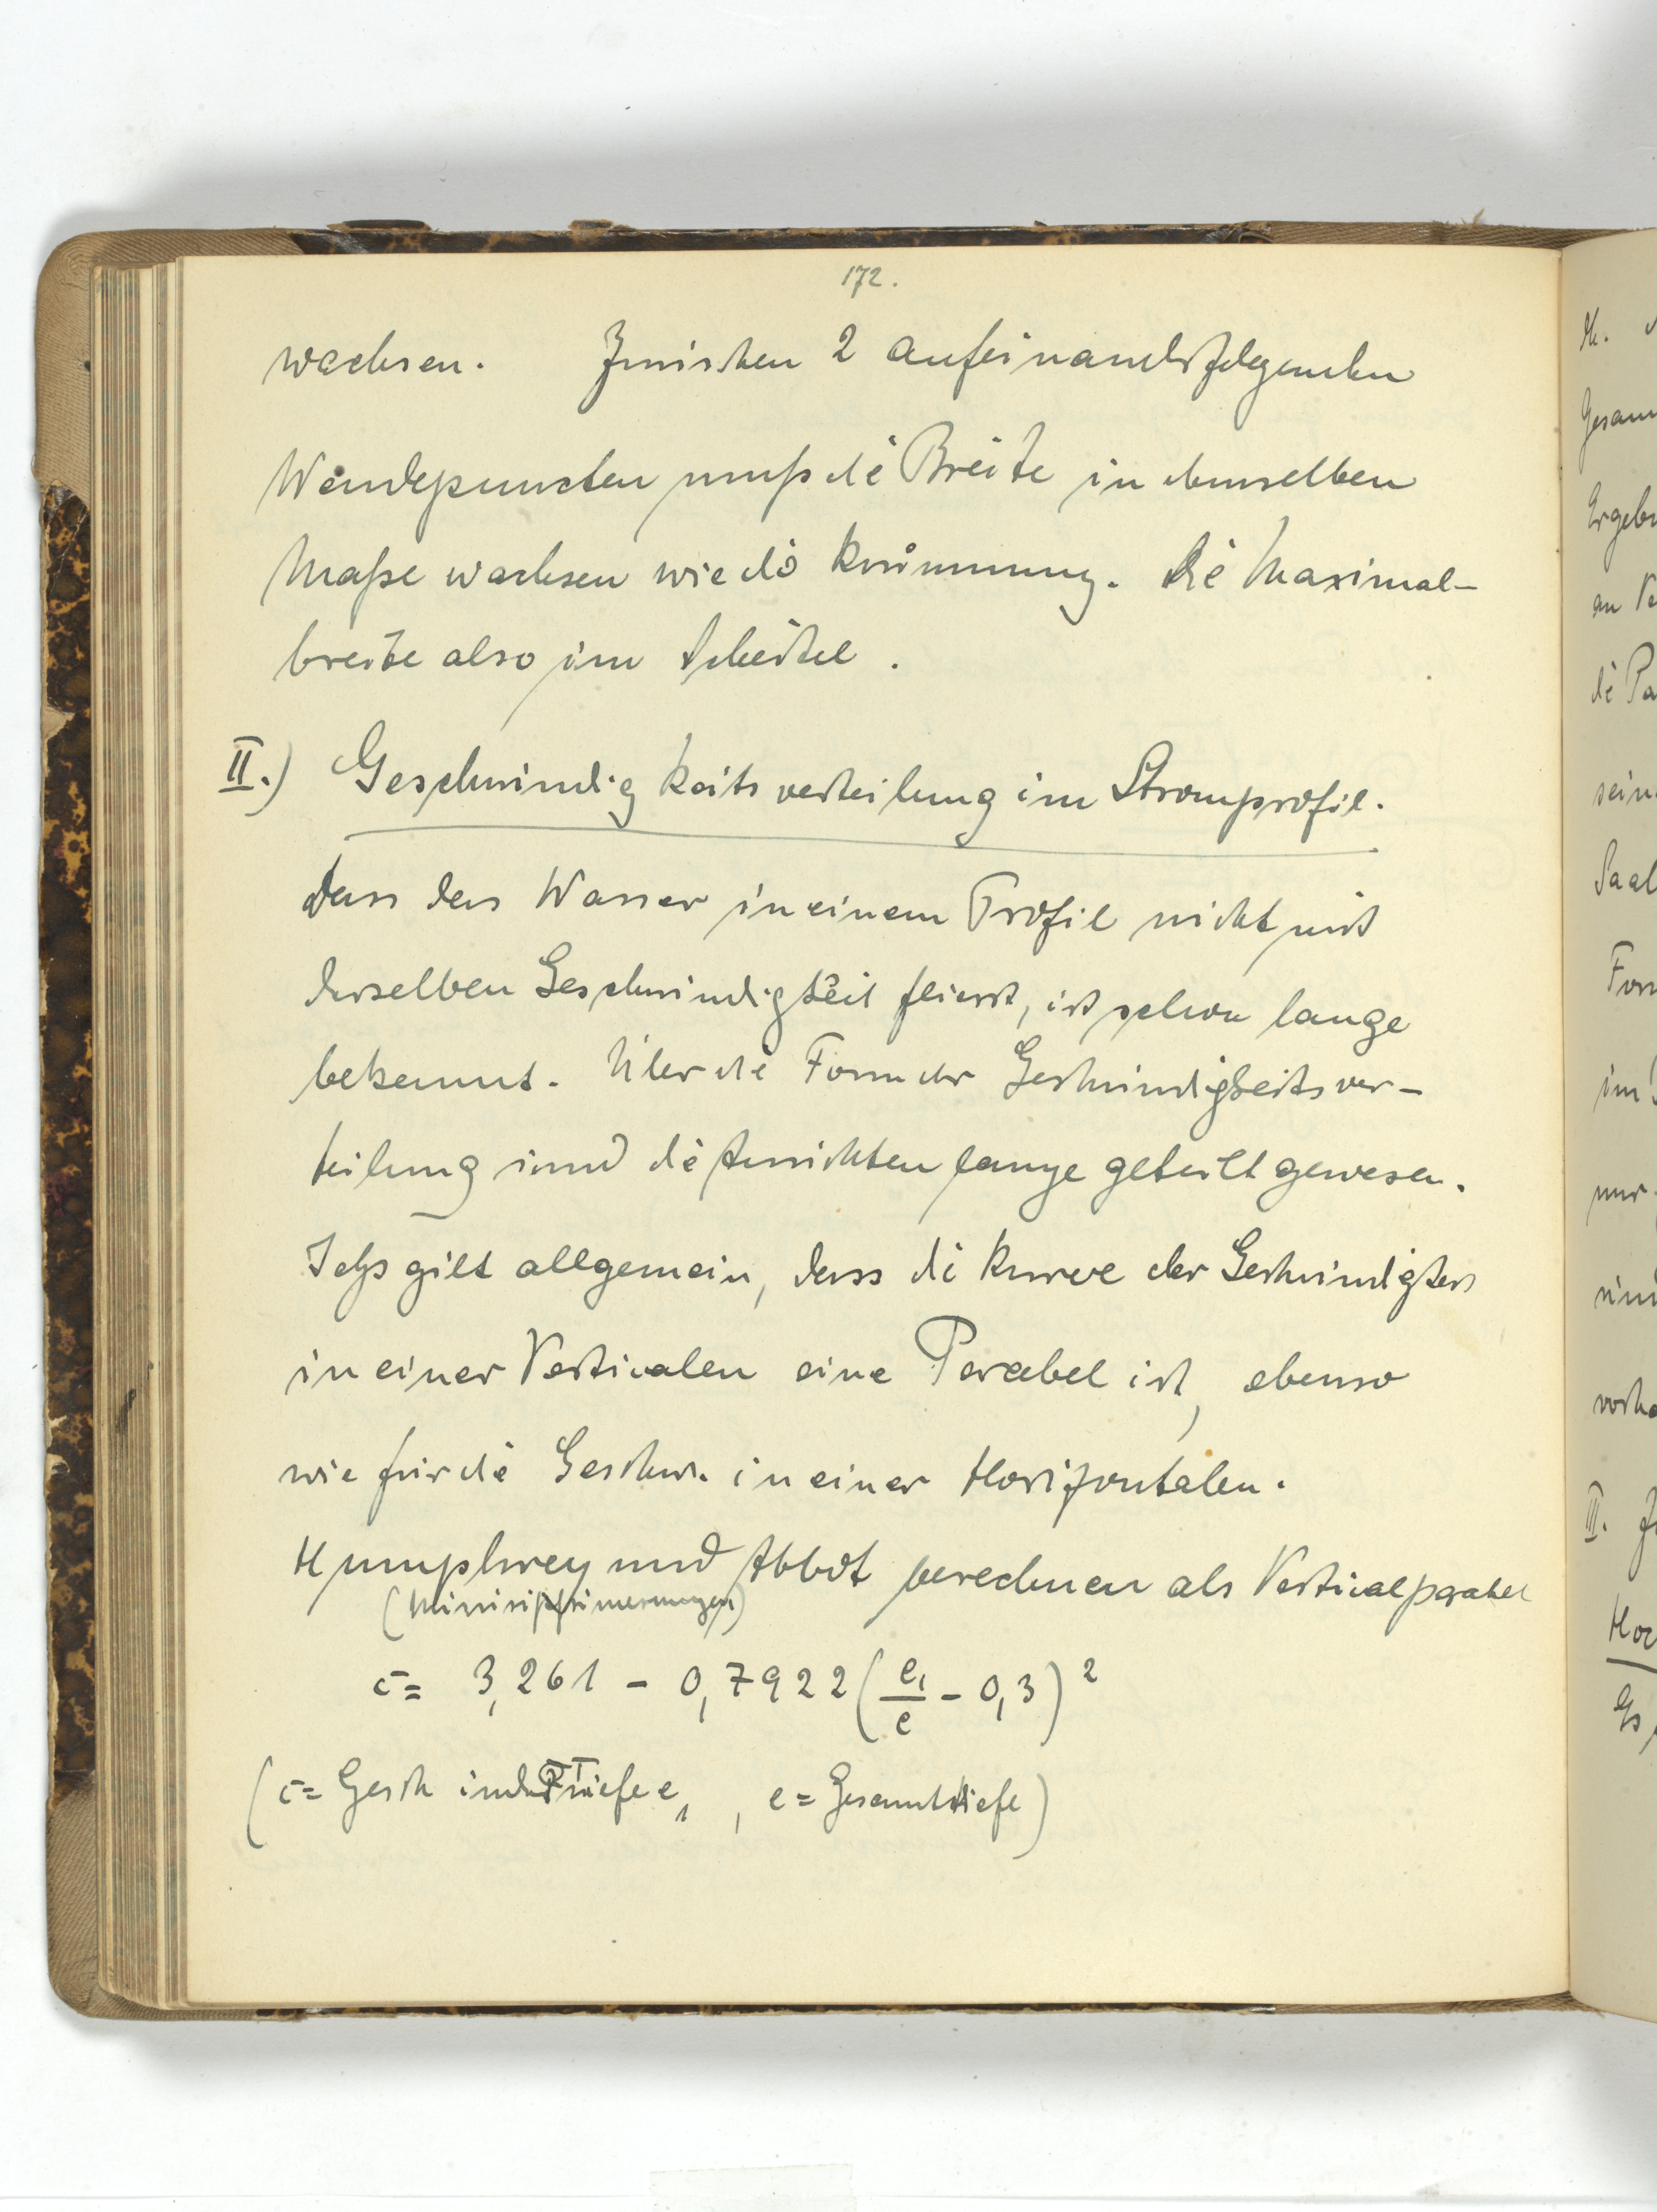 172.
wachsen. Zwischen 2 aufeinanderfolgenden
Wendepuncten muß die Breite in demselben
Maße wachsen wie die Krümmung. Die Maximal-
breite also im Scheitel.
II.) Geschwindigkeitsverteilung im Stromprofil.
Dass das Wasser in einem Profil nicht mit
derselben Geschwindigkeit fliesst, ist schon lange
bekannt. Über die Form der Geschwindigkeitsver-
teilung sind die Ansichten lange geteilt gewesen.
Jetzt gilt allgemein, dass die Kurve der Geschwindigkeit
in einer Verticalen eine Parabel ist, ebenso
wie für die Geschw. in einer Horizontalen.
Humphrey und Abbot berechnen als Verticalparabel
c = 3,261 - 0,7922 (e₁/e - 0,3)²
(c = Gesch in der Tiefe e₁, e = Gesamttiefe)